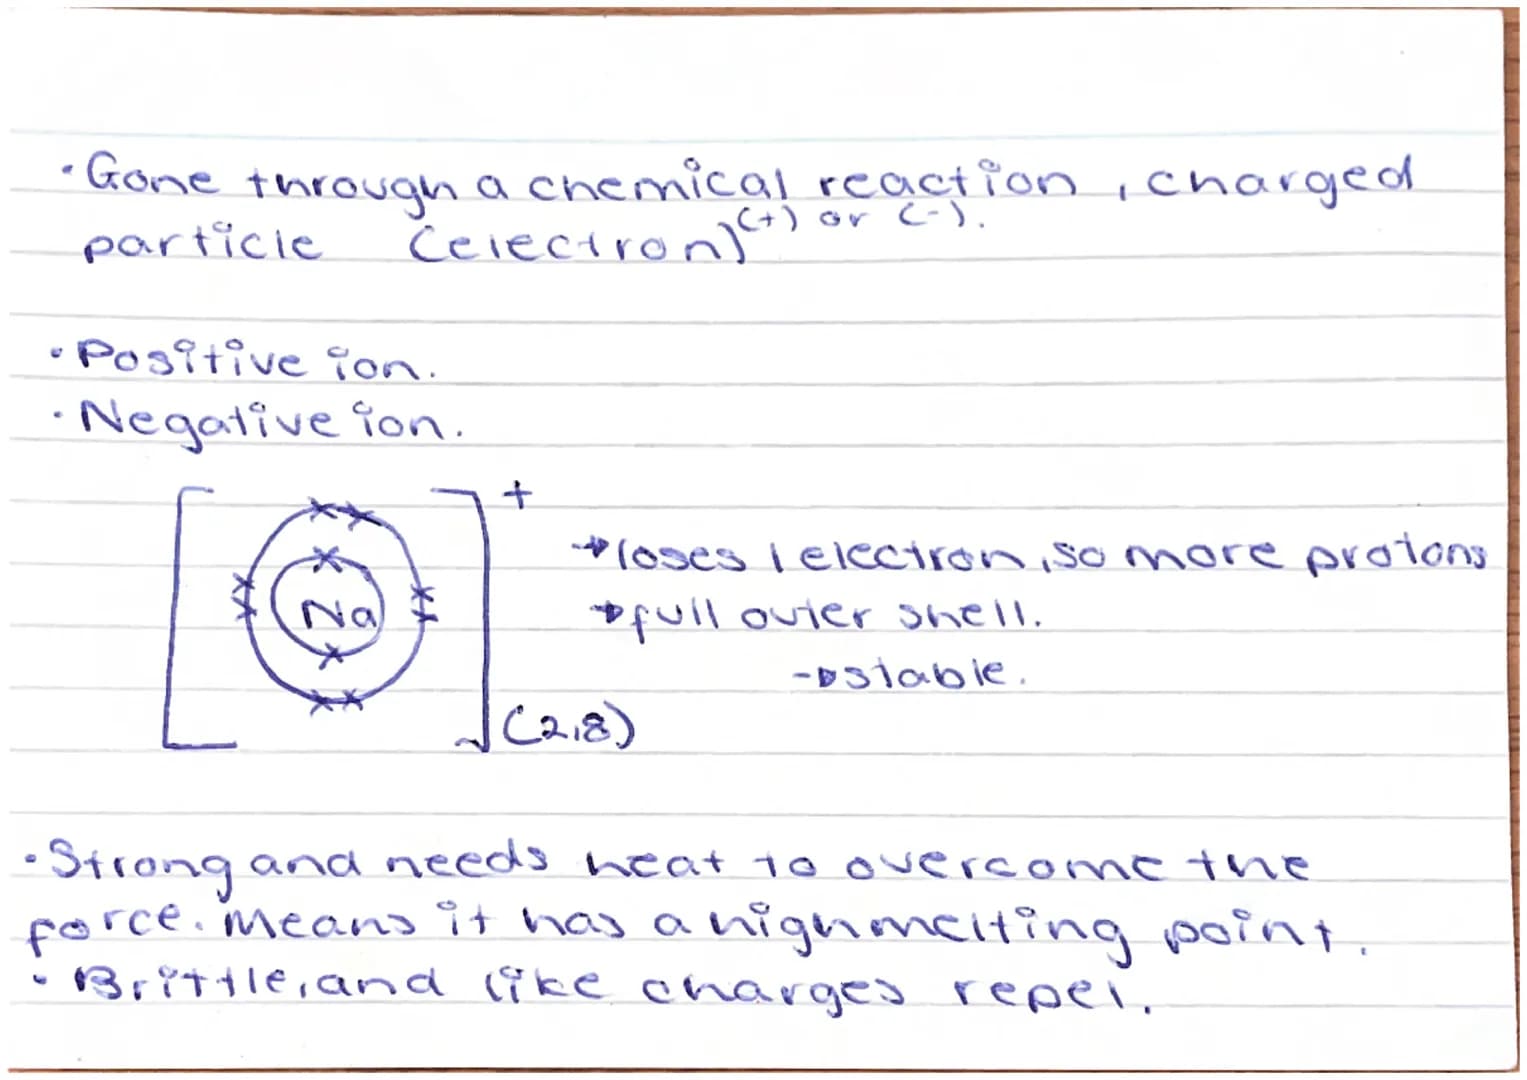 • Gone through a chemical reaction, charged
particle (electron) (+) or (-).
• Positive ion.
• Negative ion.
Na
+
(2,8)
→ loses 1 electron, so more protons
→ full outer shell.
→ stable.
• Strong and needs heat to overcome the
force. Means it has a high melting point.
• Brittle, and like charges repel.